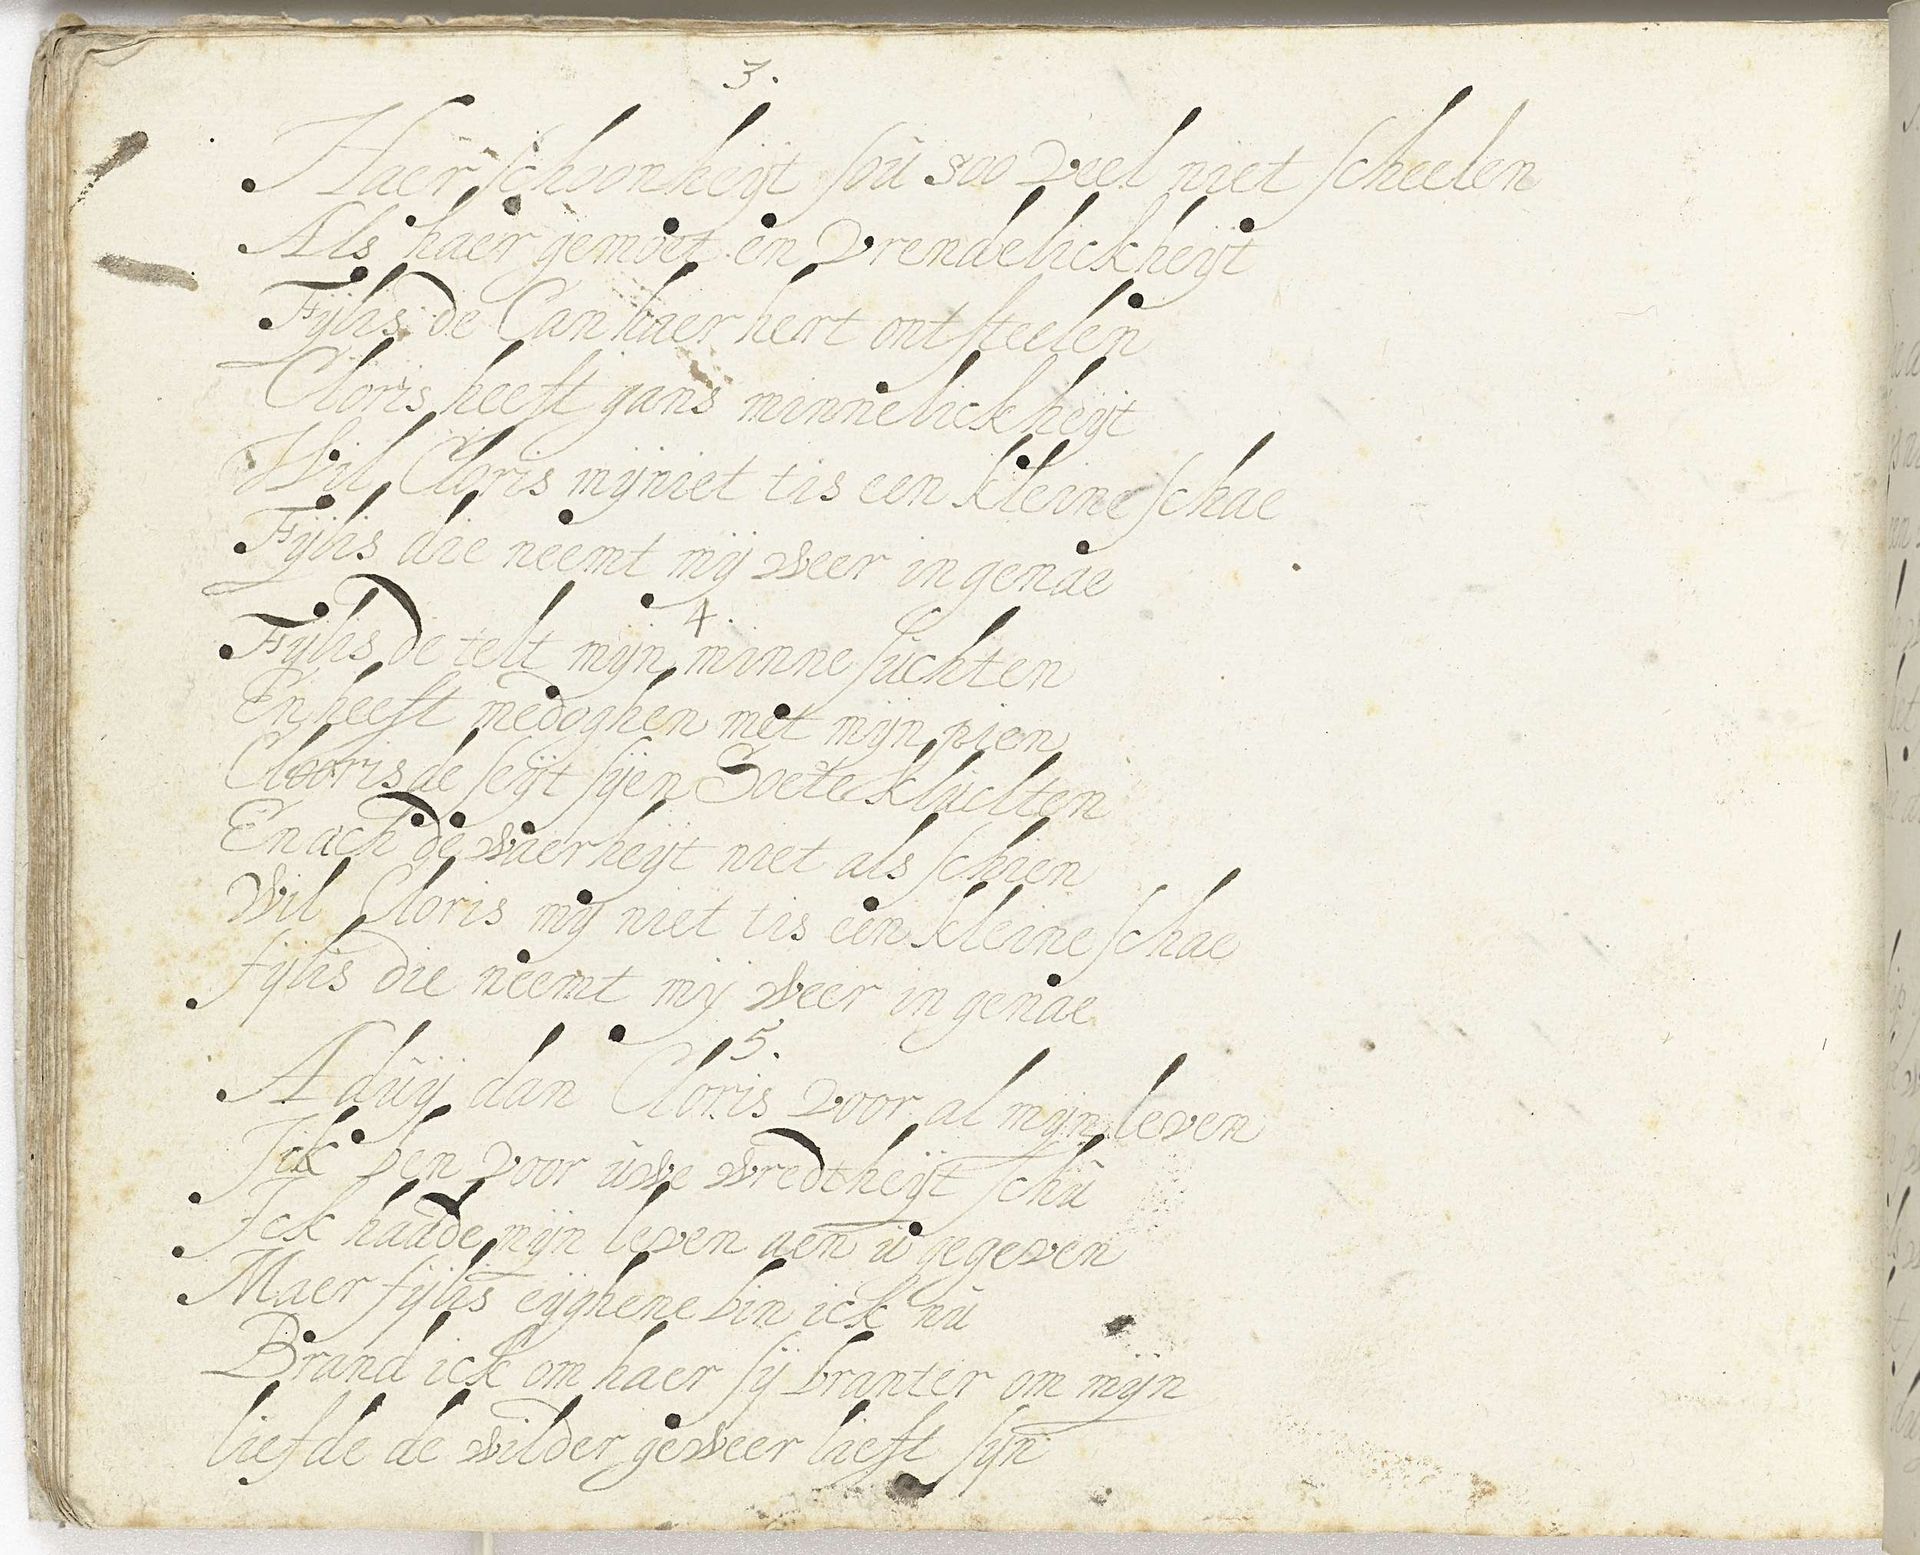 3.
Haer schoonheijt soũ soo veel niet scheelen
Als haer gemoet en vrendelickheijt
Fijlis de Can haer hert ont steelen
Cloris heeft gans minnelickheijt
Wil Cloris mijniet tis een kleine schae
Fijlis die neemt mij weer in genae
4.
Fijlis de telt mijn minne suchten
En heeft medoghen met mijn pien
Clooris de seijt sijen Soete kluchten
En ach de waerheijt niet als schien
Wil Cloris mij niet tis een kleine schae
fijlis die neemt mij weer in genae
5.
Adũij dan Cloris voor al mijn leven
Ick ben voor ũwe wredtheijt schũ
Ick hadde mijn leven aen ũ gegeven
Maer fijlis eijghene bin ick nũ
Brand ick om haer sij branter om mijn
liefde de wilder geweer lieft sijn